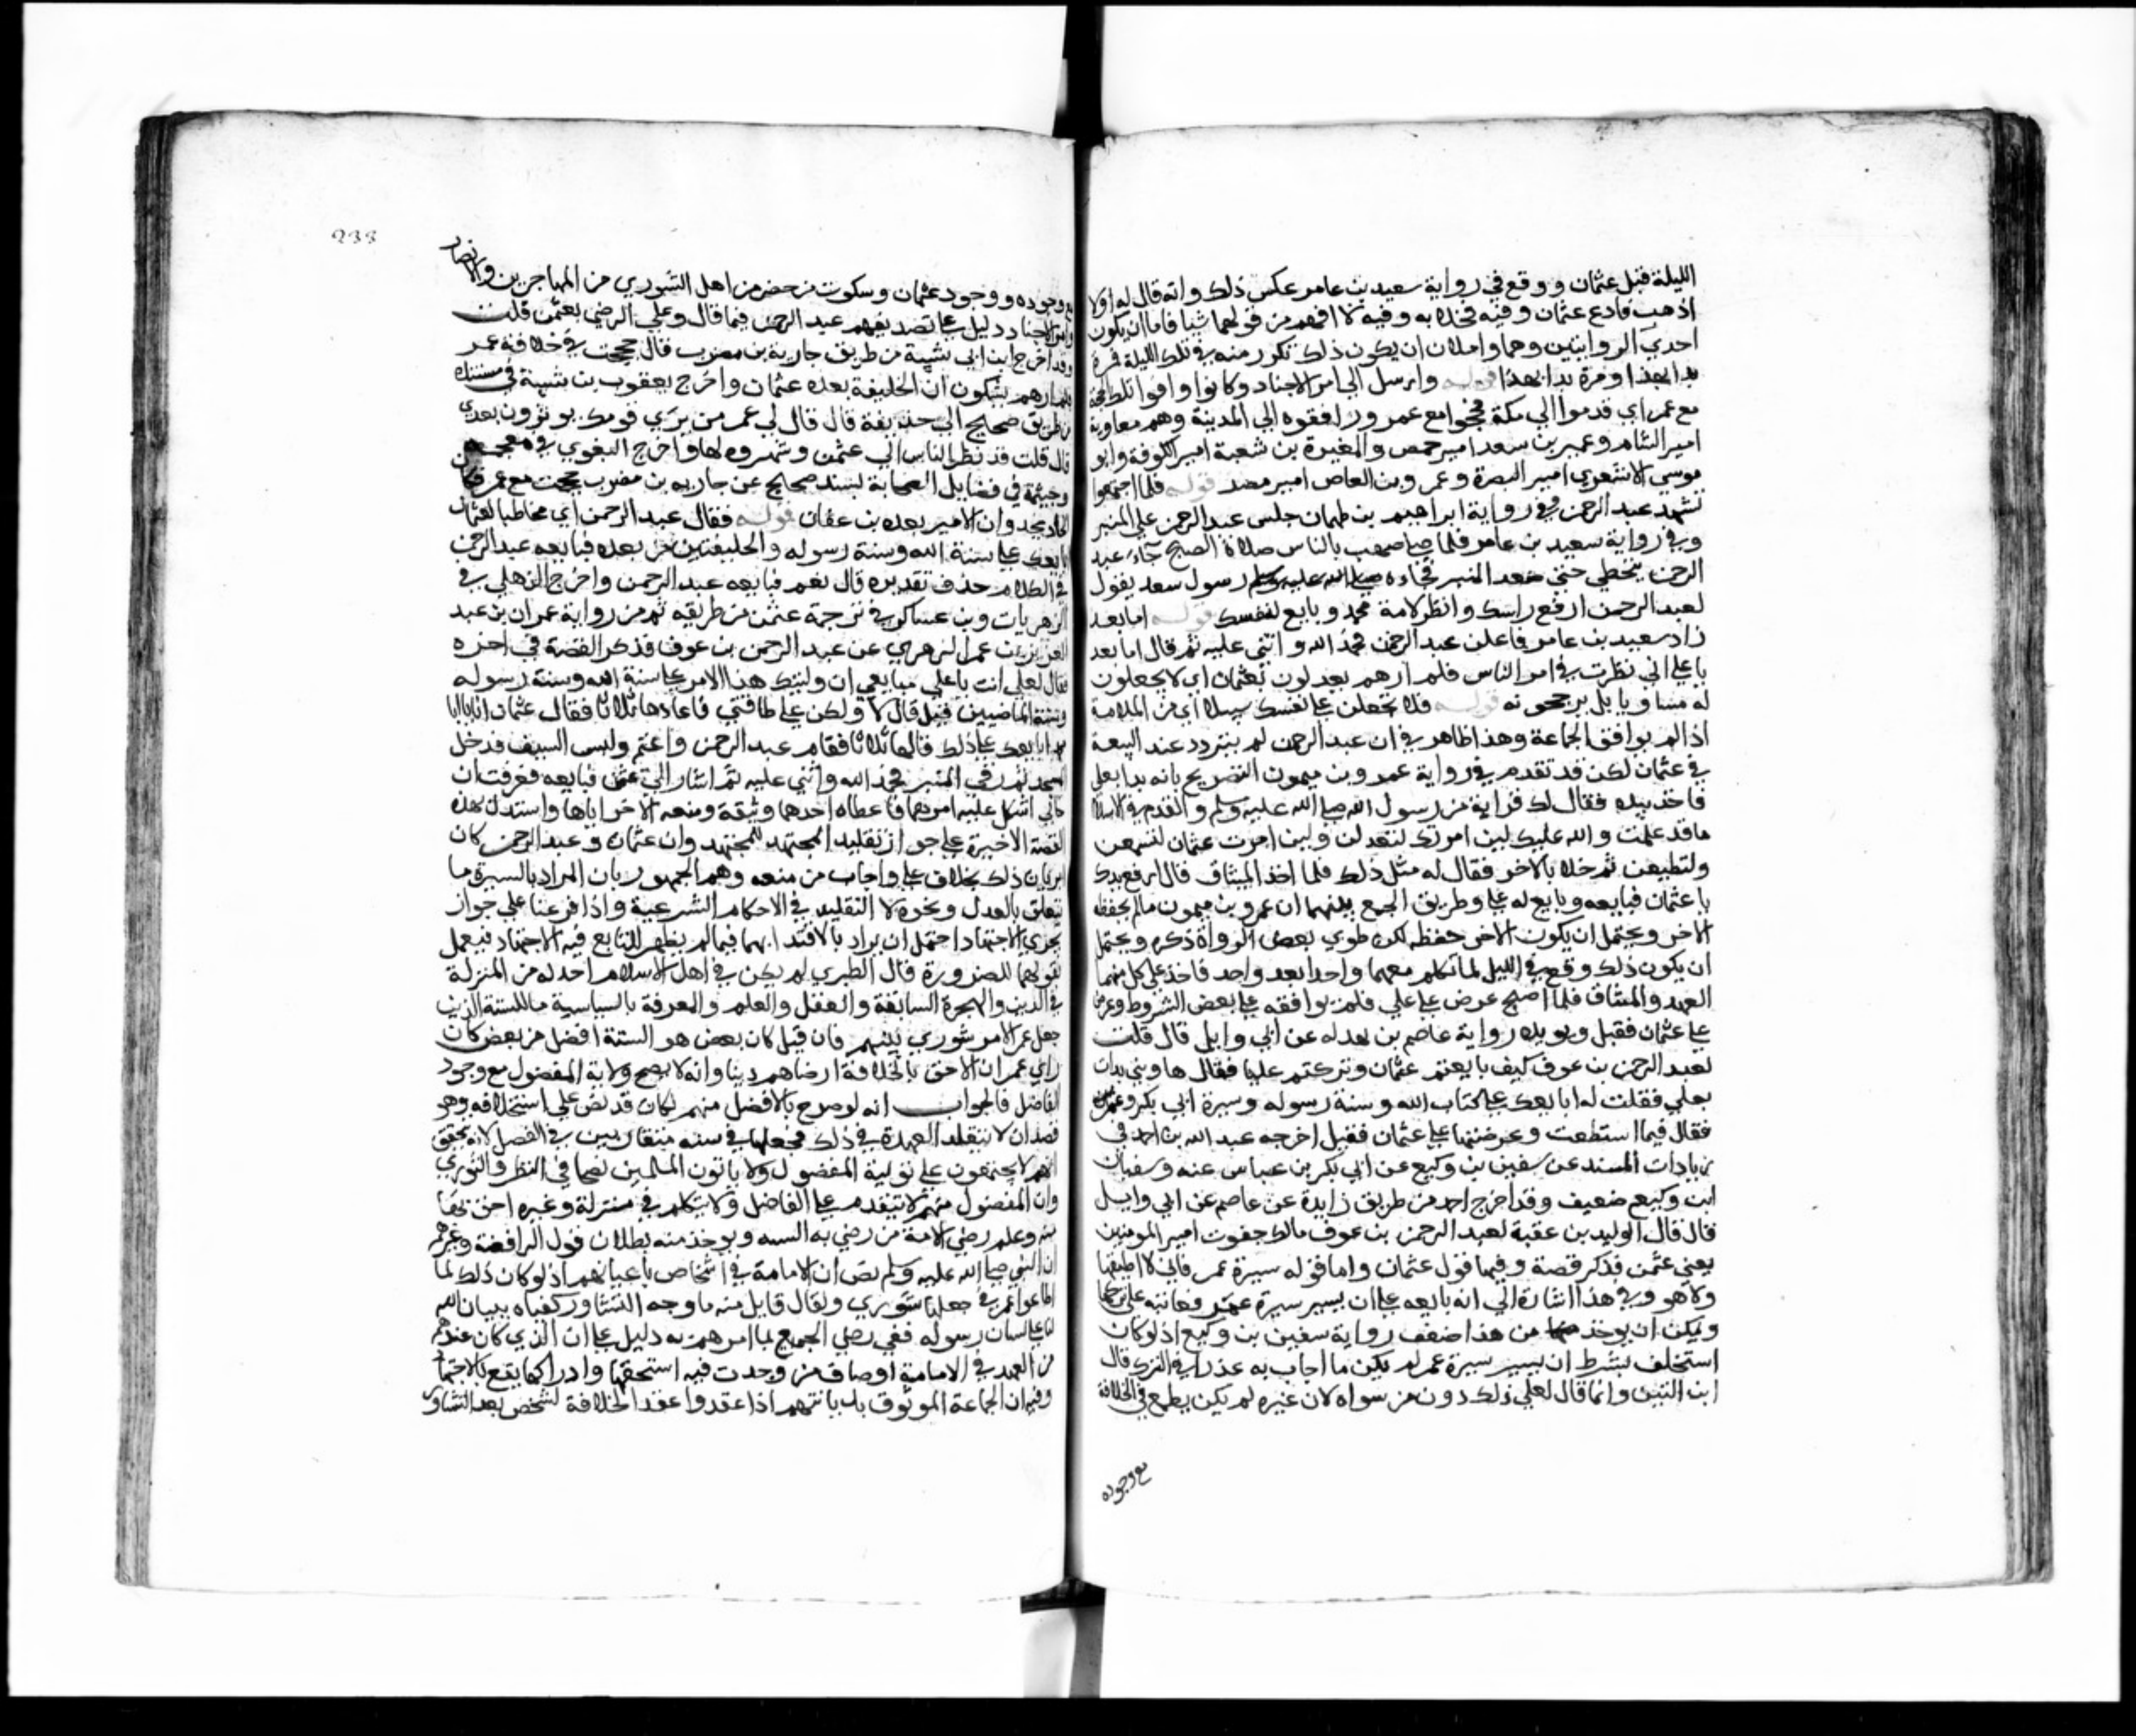 الليلة قبل عثمان ووقع في رواية سعيد بن عامر عكس ذلك وانه قال له اولا
اذهب فادع عثمان وفيه فخلا به وفيه لا افهم من قولهما شيا فاما ان يكون
احدي الروايتين وهما واما ان يكون ذلك تكرر منه في تلك الليلة فمرة
بدا بهذا ومرة بدا بهذا قوله وارسل الي امرا الاجناد وكانوا وافوا تلك الحجة
مع عمر اي قدموا الي مكة فحجوا مع عمر ورافقوه الي المدينة وهم معاوية
امير الشام وعمير بن سعد امير حمص والمغيرة بن شعبة امير الكوفة وابو
موسي الاشعري امير البصرة وعمرو بن العاص امير مصر قوله فلما اجتمعوا
تشهد عبد الرحمن في رواية ابراهيم بن طهمان جلس عبد الرحمن علي المنبر
وفي رواية سعيد بن عامر فلما صلي صهيب بالناس صلاة الصبح جاء عبد
الرحمن يتخطي حتي صعد المنبر فجاءه رسول سعد يقول
لعبد الرحمن ارفع راسك وانظر لامة محمد وبايع لنفسك قوله اما بعد
زاد سعيد بن عامر فاعلن عبد الرحمن فحمد الله واثني عليه ثم قال اما بعد
يا علي اني نظرت في امر الناس فلم ارهم يعدلون بعثمان اي لا يجعلون
له مساويا بل يرجحونه قوله فلا تجعلن علي نفسك سبيلا اي من الملامة
اذا لم يوافق الجماعة وهذا ظاهر في ان عبد الرحمن لم يتردد عند البيعة
في عثمان لكن قد تقدم في رواية عمرو بن ميمون التصريح بانه بدا بعلي
فاخذ بيده فقال لك قرابة من رسول الله صلي الله عليه وسلم والقدم في الاسلام
ما قد علمت والله عليك لين امرتك لتعدلن ولين امرت عثمان لتسمعن
ولتطيعن ثم خلا بالاخر فقال له مثل ذلك فلما اخذ الميثاق قال ارفع يدك
يا عثمان فبايعه وبايع له علي وطريق الجمع بينهما ان عمرو بن ميمون ما لم يحفظه
الاخر ويحتمل ان يكون الاخر حفظه لكن طوي بعض الرواة ذكره ويحتمل
ان يكون ذلك وقع في الليل لما تكلم معهما واحدا بعد واحد فاخذ علي كل منهما
العهد والميثاق فلما اصبح عرض علي علي فلم يوافقه علي بعض الشروط وعرض
علي عثمان فقبل ويويده رواية عاصم بن بهدله عن ابي وايل قال قلت
لعبد الرحمن بن عوف كيف بايعتم عثمان وتركتم عليا فقال ما ذنبي بدات
بعلي فقلت له ابايعك علي كتاب الله وسنة رسوله وسيرة ابي بكر وعمر
فقال فيما استطعت وعرضتها علي عثمان فقبل اخرجه عبد الله بن احمد في
زيادات المسند عن سفين بن وكيع عن ابي بكر بن عياش عنه وسفيان
ابن وكيع ضعيف وقد اخرج احمد من طريق زايدة عن عاصم عن ابي وايل
قال قال الوليد بن عقبة لعبد الرحمن بن عوف مالك جفوت امير المومنين
يعني عثمن فذكر قصة وفيها قول عثمان واما قوله سيرة عمر فاني لا اطيقها
ولا هو وفي هذا اشارة الي انه بايعه علي ان يسير سيرة عمر فعاتبه علي تركها
ويمكن ان يوخذ من هذا ضعف رواية سفين بن وكيع اذ لو كان
استخلف بشرط ان يسير سيرة عمر لم يكن ما اجاب به عذرا في الترك قال
ابن التين وانما قال لعلي ذلك دون من سواه لان غيره لم يكن يطمع في الخلافة
مع وجوده
233
مع وجوده ووجود عثمان وسكوت من حضر من اهل الشوري من المهاجرين والانصار
وامرا الاجناد دليل علي تصديقهم عبد الرحمن فيما قال وعلي الرضي بعثمن قلت
وقد اخرج ابن ابي شيبة من طريق حارثة بن مضرب قال حججت في خلافة عمر
فلم ارهم يشكون ان الخليفة بعده عثمان واخرج يعقوب بن شيبة في مسنده
من طريق صحيح الي حذيفة قال قال لي عمر من يري قومك يومرون بعدي
قال قلت قد نظر الناس الي عثمن وشهروه لها واخرج البغوي في معجمه
وخيثمة في فضايل الصحابة بسند صحيح عن حارثه بن مضرب حججت مع عمر فكان
الحادي يحدو ان الامير بعده بن عفان قوله فقال عبد الرحمن اي مخاطبا لعثمان
ابايعك علي سنة الله وسنة رسوله والخليفتين من بعده فبايعه عبد الرحمن
في الكلام حذف تقديره قال نعم فبايعه عبد الرحمن واخرج الذهلي في
الزهريات وبن عساكر في ترجمة عثمن من طريقه ثم من رواية عمران بن عبد
العزيز بن عمر الزهري عن عبد الرحمن بن عوف فذكر القصة في اخره
فقال لعلي انت يا علي مبايعي ان وليتك هذا الامر علي سنة الله وسنة رسوله
وسنة الماضيين قبل قال لا ولكن علي طاقتي فاعادها ثلاثا فقال عثمان انا يا ابا
محمد ابايعك علي ذلك قالها ثلاثا فقام عبد الرحمن واعتم ولبس السيف فدخل
المسجد ثم رقي المنبر فحمد الله واثني عليه ثم اشار الي عثمن فبايعه فعرفت ان
خالي اشكل عليه امرهما فاعطاه احدهما وثيقة ومنعه الاخر اياها واستدل بهذه
القصة الاخيرة علي جواز تقليد المجتهد للمجتهد وان عثمان وعبد الرحمن كان
يريان ذلك بخلاف علي واجاب من منعه وهم الجمهور بان المراد بالسيرة ما
يتعلق بالعدل ونحوه لا التقليد في الاحكام الشرعية واذا فرعنا علي جواز
تجزي الاجتهاد احتمل ان يراد بالاقتدا بهما فيما لم يظهر للتابع فيه الاجتهاد فيعمل
بقولهما للضرورة قال الطبري لم يكن في اهل الاسلام احد له من المنزلة
في الدين والهجرة السابقة والعقل والعلم والمعرفة بالسياسية ما للستة الذين
جعل عمر الامر شوري بينهم فان قيل كان بعض هو الستة افضل من بعض كان
راي عمر ان الاحق بالخلافة ارضاهم دينا وانه لا يصح ولاية المفضول مع وجود
الفاضل فالجواب انه لو صرح بالافضل منهم لكان قد نص علي استخلافه وهو
قصد ان لا يتقلد العهدة في ذلك فجعلها في سته متقاربين في الفضل لانه يحقق
انهم لا يجتمعون علي تولية المفضول ولا يالون المسلمين نصحا في النظر والشوري
وان المفضول منهم لا يتقدم علي الفاضل ولا يتكلم في منزلة وغيره احق بها
منه وعلم رضي الامة من رضي به الستة ويوخذ منه بطلان قول الرافضة وغيرهم
ان النبي صلي الله عليه وسلم نص ان الامامة في اشخاص باعيانهم اذ لو كان ذلك لما
اطاعوا عمر في جعلها شوري ولقال قايل منهم ما وجه التشاور كفيناه ببيان الله
لنا علي لسان رسوله ففي رضي الجميع بما امرهم به دليل علي ان الذي كان عندهم
من العهد في الامامة اوصاف من وجدت فيه استحقها وادراكها يقع بالاجتهاد
وفيه ان الجماعة الموثوق بديانتهم اذا عقدوا عقد الخلافة لشخص بعد التشاور